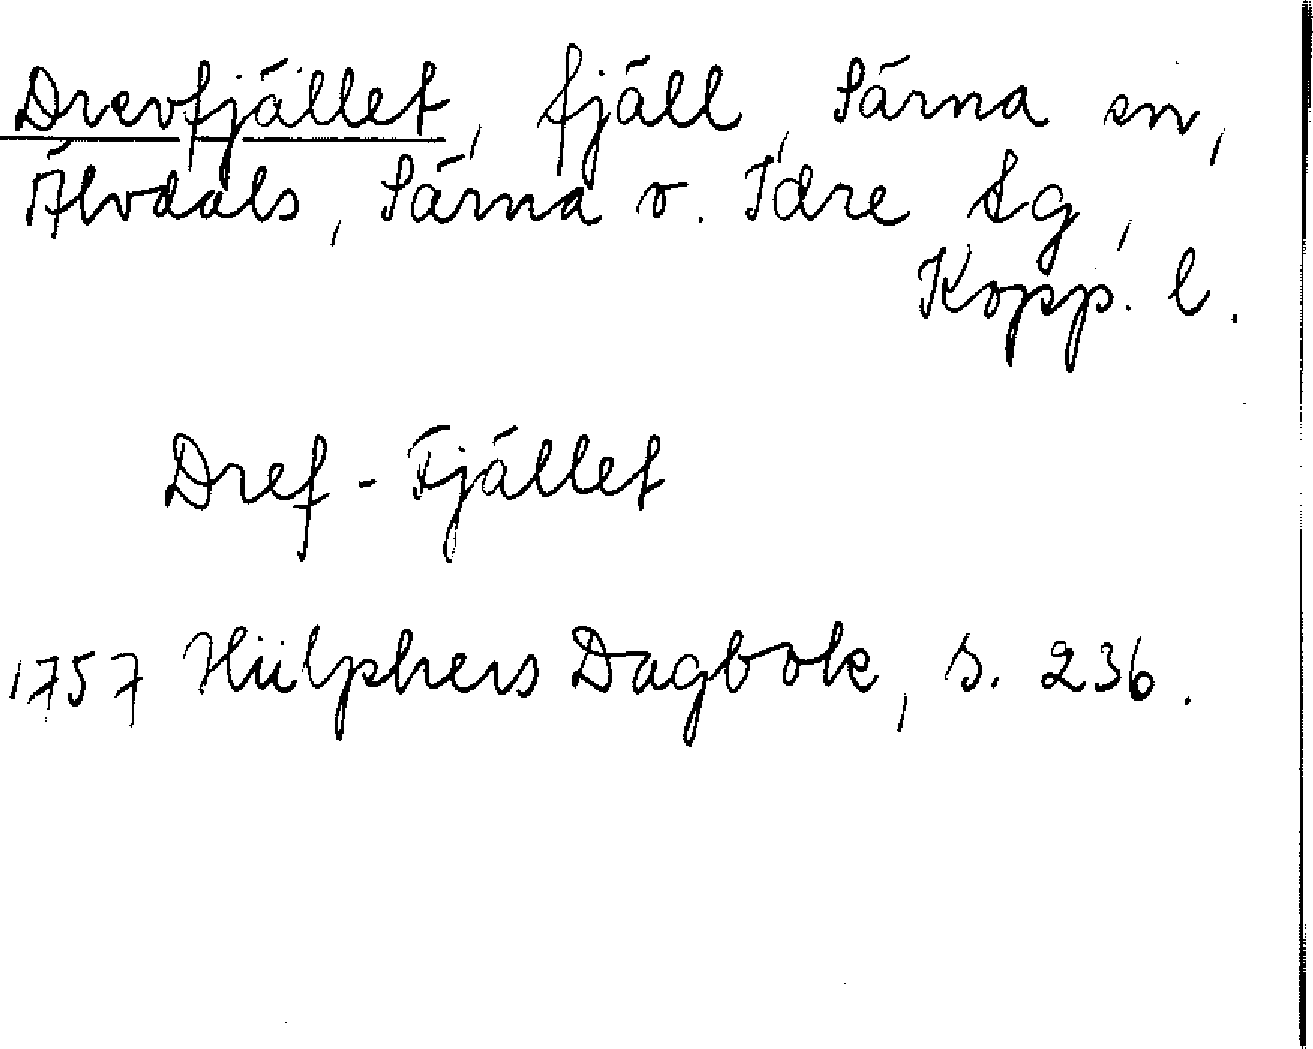 Drevfjället, fjäll, Särna sn,
Älvdals, Särna o. Idre tg,
Kopp. l.
Dref-Fjället
1757 Hülphers Dagbok, s. 236.